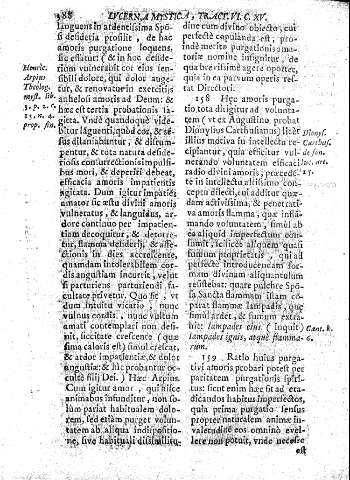 388 LVCERNA MYSTICA, TRACT. VI. C. XV.
Linguens in ardentissima Spõsi
desideria prosilit, de hac
amoris purgatione loquens,
sic effatur: & in hoc desiderio
vulnerabit cor eius sensibili
dolore, qui dolor augetur,
& renovatur in exercitijs
anhelosi amoris ad Deum: &
hæc est tertia probationis
Vnde quandoque videbitur
languenti, quod cor, & sensus
dilaniabuntur, & disrumpentur,
& tota natura desideriosis
consurrectionis impulsibus
mori, & deperiri debeat,
efficacia amoris impatientis
agitata. Dum igitur impatiẽ
amator sic æstu divini amoris
vulneratus, & languidus, ardore
continuo per impatientiam
decoquitur,
flamma desiderij, & afflictionis
in dies accrescente,
quamdam intolerabilem cordis
angustiam incurrit, velut
si parturiens parturiendi facultate
privetur. Quo fit, ut
dum intuitus vicario, nunc
vulnus cordis, nunc vultum
amati contemplari non desinit,
siccitate crescente (quæ
simul crescat,
& ardor impatientiæ, & dolor
angustiæ: & hîc probantur occultè
filij Dei. Hæc Arpius.
Cum igitur amor, qui hisce
animabus infunditur, non solùm
pariat habitualem dolorem,
sed etiam purget voluntatem
ab aliqua indispositione,
sive habituali dissimilitudine
Henric.
Arpius
Theolog.
myst. lib.
3. p. 2. c.
15. n. 4.
prop. fin.
dine cum divino obiecto, cui
perfectè copulanda est, proinde
meritò purgationis amatoriæ
nomine insignitur, de
qua brevissimè agere oportet,
quia in ea parùm operis restat
Directori.
158 Hæc amoris purgatio
tota dirigitur ad voluntatem
(ut ex Augustino probat
Dionysius Carthusianus) licèt
illius initiva in intellectu recipiantur,
quia efficitur vulnerando
voluntatem efficaci
radio divini amoris, præcedente
in intellectu altissimo conceptu
dilecti, cui additur quædam
activissima, & penetrativa
amoris flamma, quæ inflãmando
voluntatem, simul ab
ea aliquid imperfectum consumit,
scilicet aliquem quasi
fumum proprietatis, qui ad
perfectè introducendam formam
divinam aliquantulum
resistebat: quare pulchrè Spõsa
Sanctã flammam illam comparat
flammæ lampadis, quæ
simul ardet, & fumum extrahit:
lampades eius (inquit)
lampades ignis, atque flammarum.
Dionys.
Carthus.
de font.
luc. art.
17.
Cant. 8.
6.
159 Ratio huius purgativi
amoris probari potest per
paritatem purgationis spiritus:
sicut enim hæc fit ad eradicandos
habitus imperfectos,
quia prima purgatio sensus
propter naturalem animæ invaletudine
eos omninò evellere
non potuit, unde necesse
est